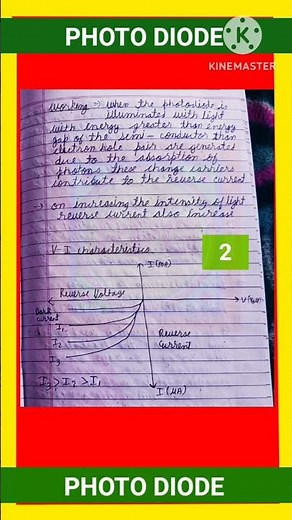 PHOTO DIODE
K
KINEMASTER
Working → when the photodiode is
illuminated with light
with energy greater than energy
gap of the semi-conductor than
electron hole pair are generated
due to the absorption of
photons these change carriers
contribute to the reverse current
→ on increasing the intensity of light
reverse current also increase
V-I characteristics
2
I (mA)
Reverse Voltage
Dark
current
I₁
I₂
I₃
Reverse
Current
I₃ > I₂ > I₁
I (μA)
PHOTO DIODE